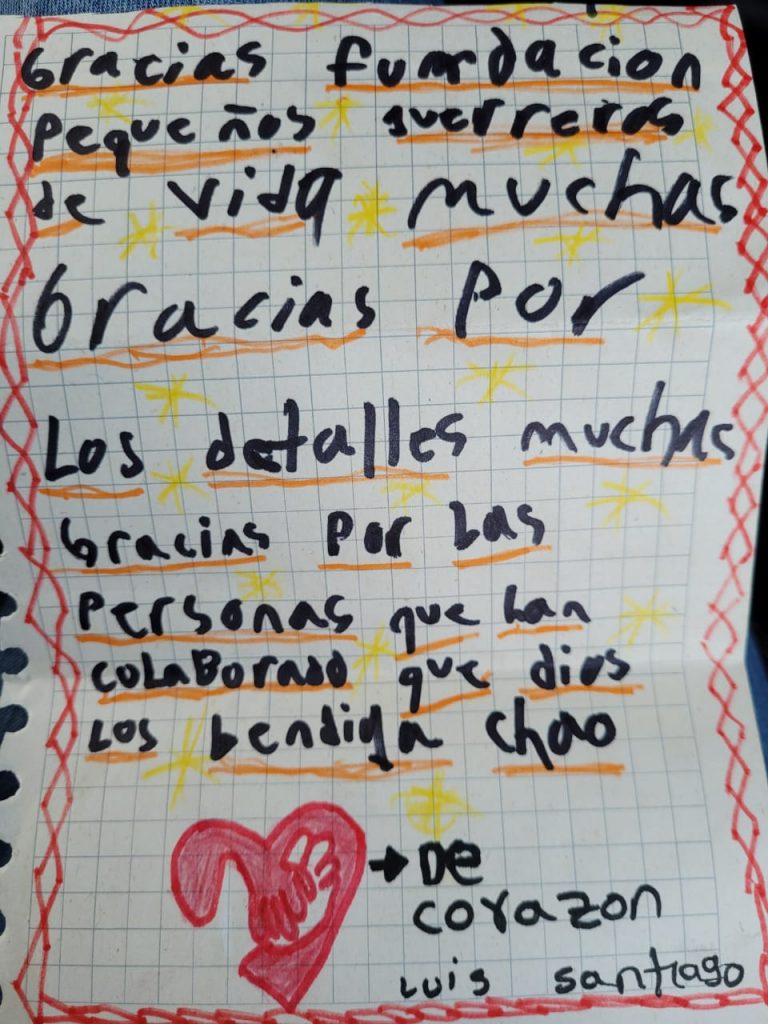 Gracias fundacion
Pequeños guerreros
de vida muchas
Gracias Por
Los detalles muchas
Gracias Por Las
Personas que han
coLaBorado que dios
Los bendiga chao
De
corazon
Luis santiago